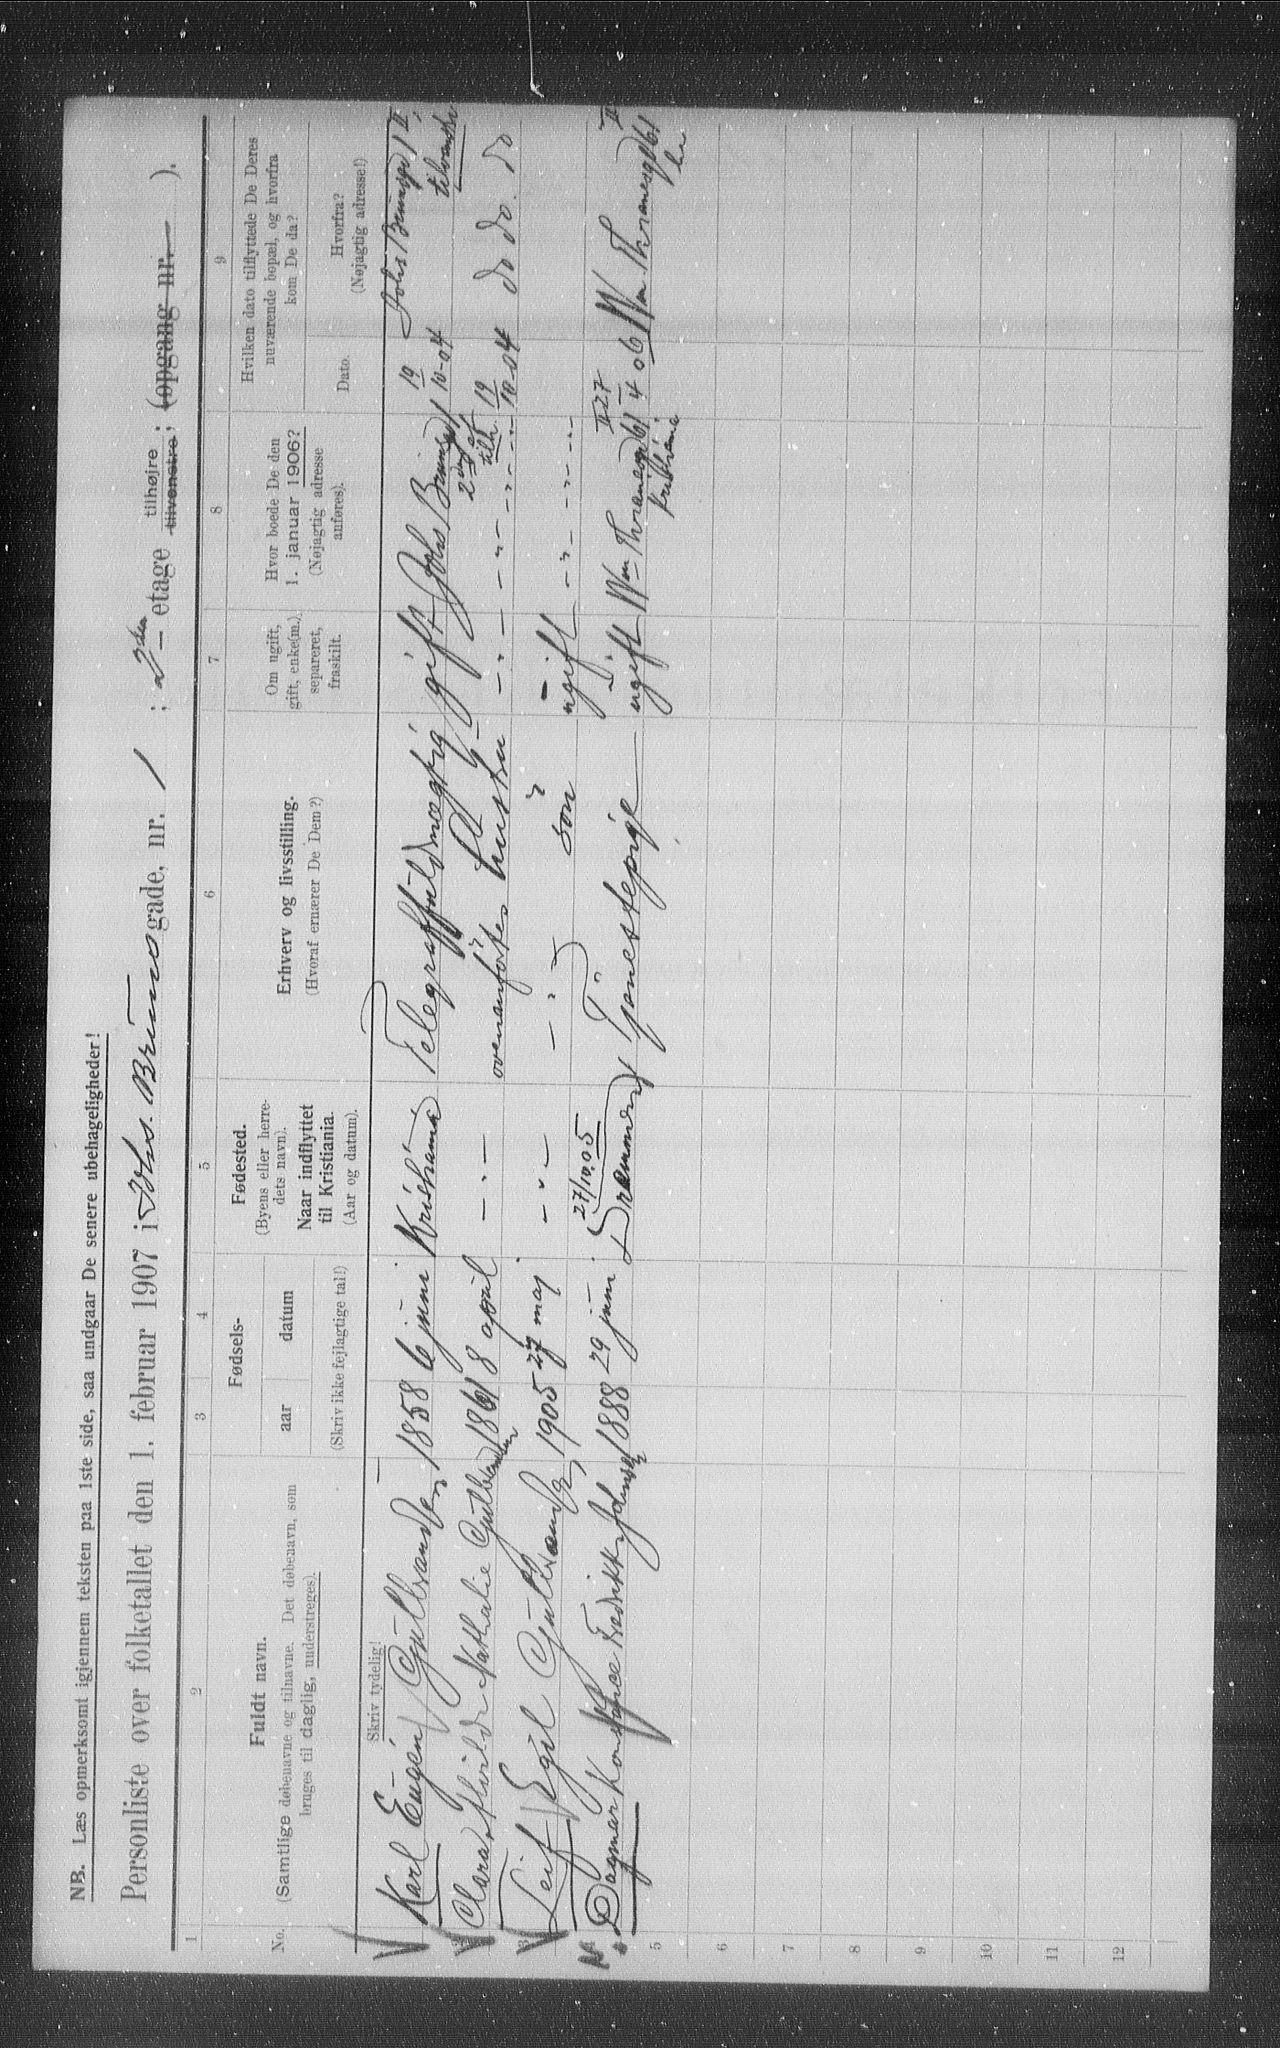 NB. Læs opmerksomt igjennem teksten paa 1ste side, saa undgaar De senere ubehageligheder!
Personliste over folketallet den 1. februar 1907 i Johs. Bruns gade, nr. 1 ; 2den etage tilhøjre tilvenstre; (opgang nr. — ).
1 2 3 4 5 6 7 8 9
No.
Fuldt navn.
(Samtlige døbenavne og tilnavne. Det døbenavn, som
bruges til daglig, understreges).
Fødsels-
aar
datum
(Skriv ikke fejlagtige tal!)
Fødested.
(Byens eller herre-
dets navn).
Naar indflyttet
til Kristiania.
(Aar og datum).
Erhverv og livsstilling.
(Hvoraf ernærer De Dem?)
Om ugift,
gift, enke(m.),
separeret,
fraskilt.
Hvor boede De den
1. januar 1906?
(Nøjagtig adresse
anføres).
Hvilken dato tilflyttede De Deres
nuværende bopæl, og hvorfra
kom De da?
Dato.
Hvorfra?
(Nøjagtig adresse!)
Skriv tydelig!
Karl Eugén Gulbrandsen 1858 6 juni Kristiania Telegraffuldmægtig gift Johs Brunsgd 1 2den et tilh. 19/10-04 Johs Brunsgd 1 II tilvenstre
2 Clara Nathalie Gulbrandsen 1861 8 april — " — ovenanførtes hustru — " — — " — 19/10-04 do do. do
3 Leif Egil Gulbrandsen 1905 27 maj — " — — " — søn ugift — " — — " —
4 Dagmar Konstance Fredrikke Johnsen 1888 29 juni 27/10.05 Drammen Tjenestepige ugift Wm Thranesgd 61 II Kristiania 27/4 06 Wm Thranesgd 61 II
5
6
7
8
9
10
11
12